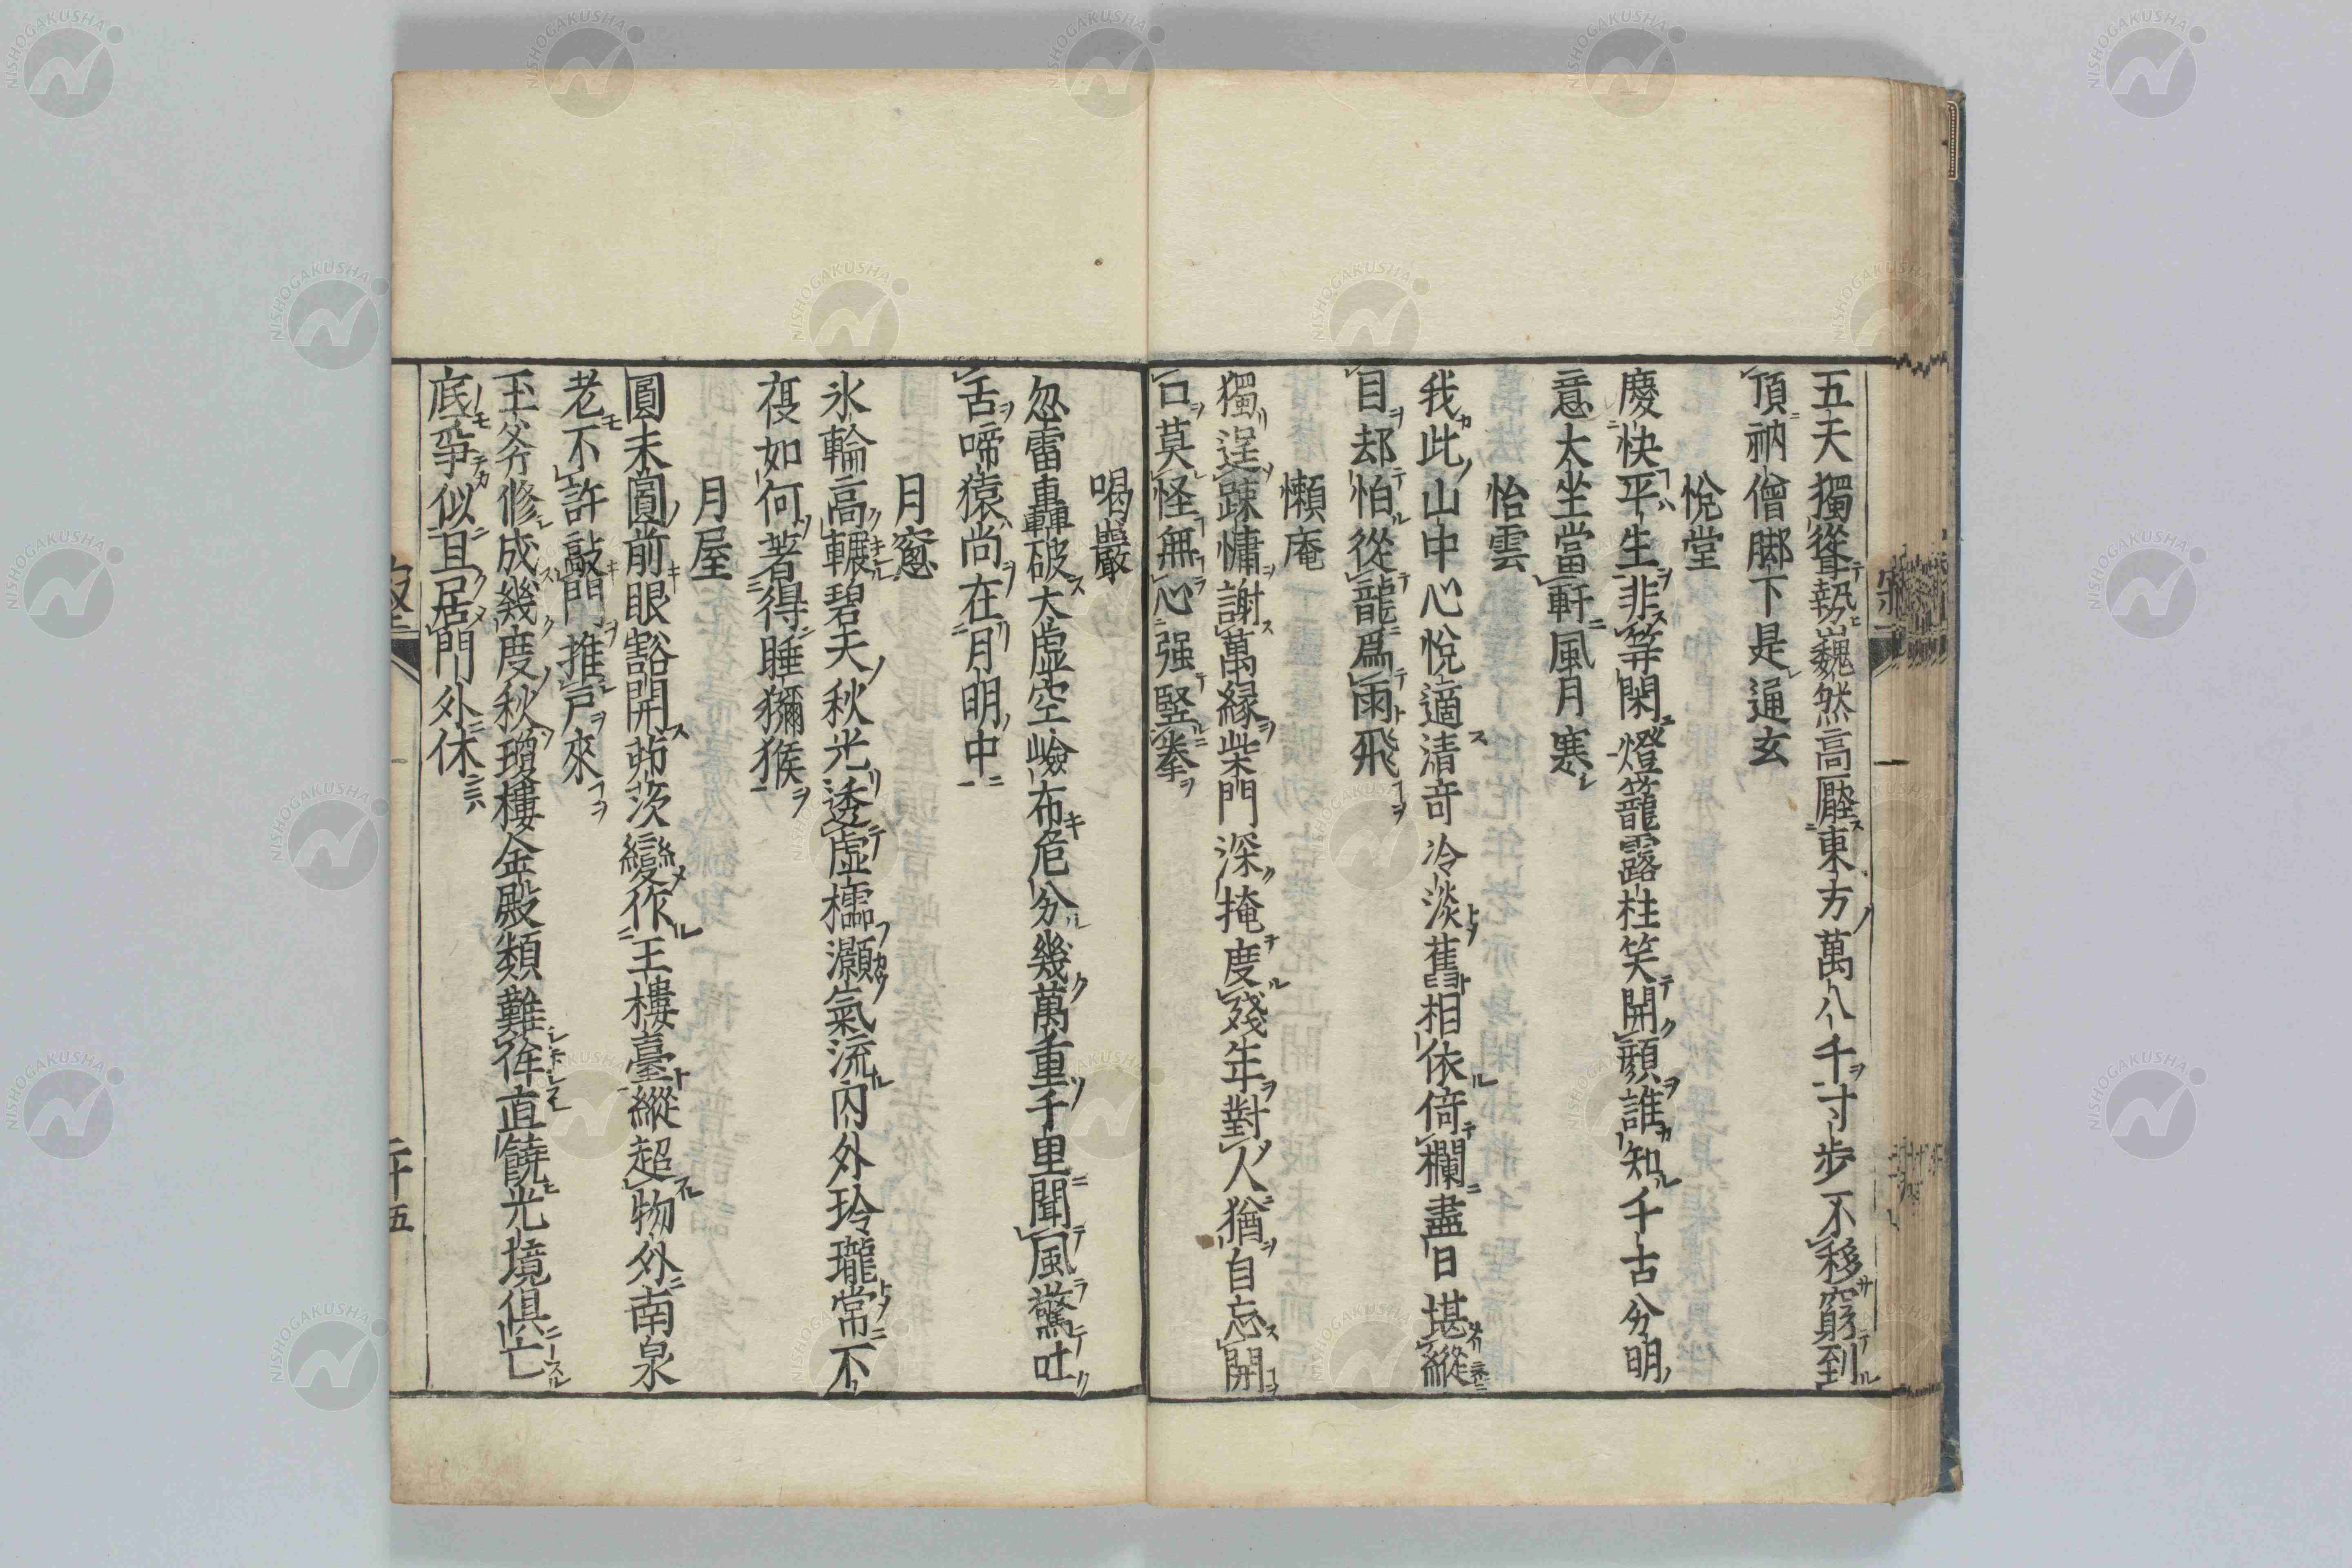 五天獨從聳勢巍然高壓東方萬八千寸步不移窮到
頂衲僧脚下是通玄
悅堂
慶快平生非等閑燈籠露柱笑開顏誰知千古分明
意大坐當軒風月寒
怡雲
我此山中心悅適清奇冷淡舊相依倚欄盡日堪縱
目却怕從龍爲雨飛
懶庵
獨逞踈慵謝萬緣柴門深掩度殘年對人猶自忘開
口莫怪無心强竪拳
喝巖
忽雷轟破大虛空嶮布危分幾萬重千里聞風驚吐
舌啼猿尚在月明中
月窓
氷輪高輾碧天秋光透虛櫺灝氣流内外玲瓏常不
夜如何著得睡獼猴
月屋
圓未圓前眼豁開茆茨變作玉樓臺縱超物外南泉
老不許敲門推戸來
玉斧修成幾度秋瓊樓金殿類難侔直饒光境俱亡
底爭似且居門外休
二十五